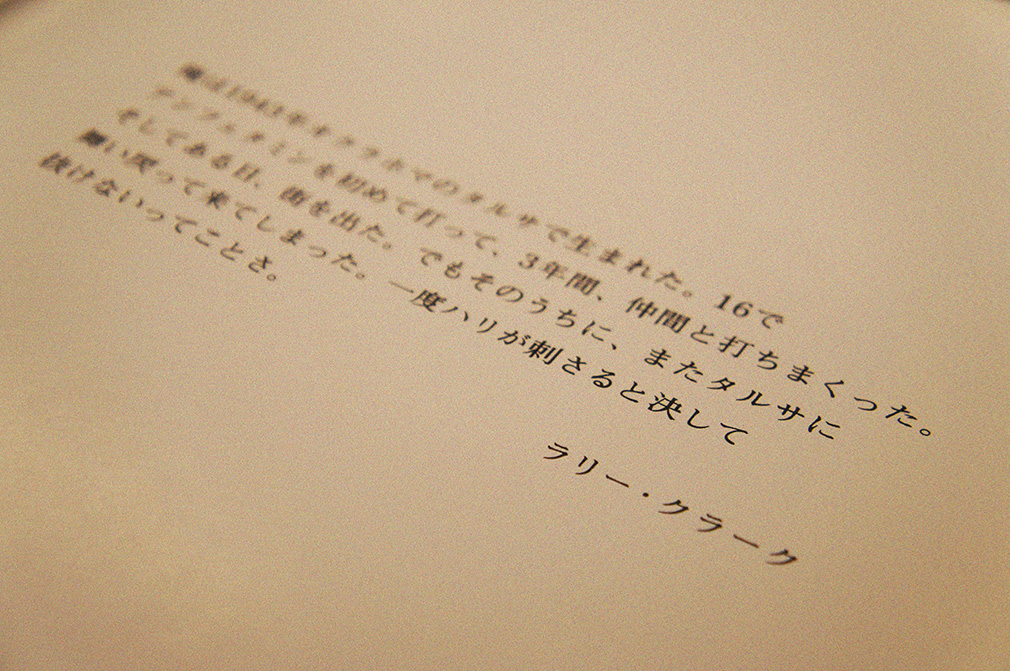 俺は1943年オクラホマのタルサで生まれた。16で
アンフェタミンを初めて打って、3年間、仲間と打ちまくった。
そしてある日、街を出た。でもそのうちに、またタルサに
舞い戻って来てしまった。一度ハリが刺さると決して
抜けないってことさ。
ラリー・クラーク